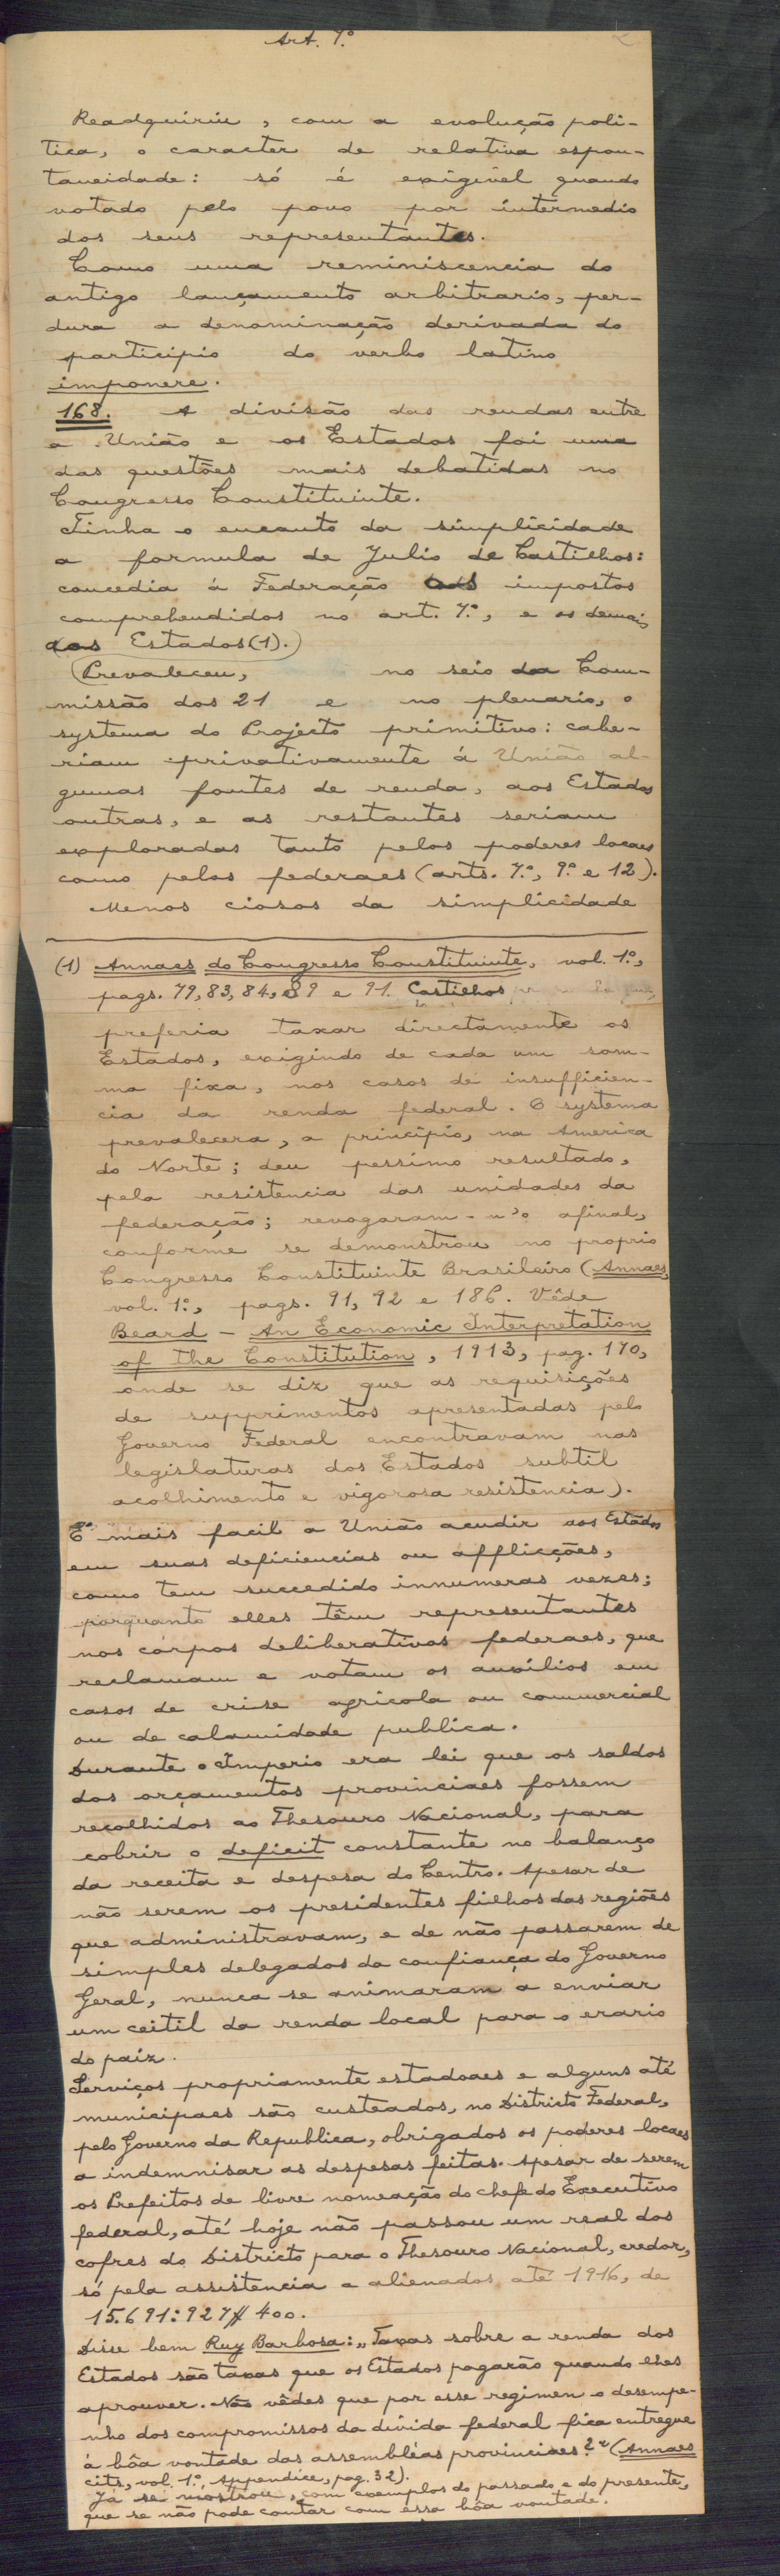 Art. 7.º
Readquiriu, com a evolução poli-
tica, o caracter de relativa espon-
taneidade: só é exigivel quando
votado pelo povo por intermedio
dos seus representantes.
Como uma reminiscencia do
antigo lançamento arbitrario, per-
dura a denominação derivada do
participio do verbo latino
imponere.
168. A divisão das rendas entre
a União e os Estados foi uma
das questões mais debatidas no
Congresso Constituinte.
Tinha o encanto da simplicidade
a formula de Julio de Castilhos:
concedia á Federação os impostos
comprehendidos no art. 7.º, e os demais
aos Estados (1).
Prevaleceu, no seio da Com-
missão dos 21 e no plenario, o
systema do Projecto primitivo: cabe-
riam privativamente á União al-
gumas fontes de renda, aos Estados
outras, e as restantes seriam
exploradas tanto pelos poderes locaes
como pelos federaes (arts. 7.º, 9.º e 12).
Menos ciosos da simplicidade
(1) Annaes do Congresso Constituinte, vol. 1.º,
pags. 79, 83, 84, 89 e 91. Castilhos
preferia taxar directamente os
Estados, exigindo de cada um som-
ma fixa, nos casos de insufficien-
cia da renda federal. O systema
prevalecera, a principio, na America
do Norte; deu pessimo resultado,
pela resistencia das unidades da
federação; revogaram-n'o afinal,
conforme se demonstrou no proprio
Congresso Constituinte Brasileiro (Annaes,
vol. 1.º, pags. 91, 92 e 186. Vêde
Beard - An Economic Interpretation
of the Constitution, 1913, pag. 170,
onde se diz que as requisições
de supprimentos apresentadas pelo
Governo Federal encontravam nas
legislaturas dos Estados subtil
acolhimento e vigorosa resistencia).
E' mais facil a União acudir aos Estados
em suas deficiencias ou afflicções,
como tem succedido innumeras vezes;
porquanto elles têm representantes
nos corpos deliberativos federaes, que
reclamam e votam os auxilios em
casos de crise agricola ou commercial
ou de calamidade publica.
Durante o Imperio era lei que os saldos
dos orçamentos provinciaes fossem
recolhidos ao Thesouro Nacional, para
cobrir o deficit constante no balanço
da receita e despesa do Centro. Apesar de
não serem os presidentes filhos das regiões
que administravam, e de não passarem de
simples delegados da confiança do Governo
Geral, nunca se animaram a enviar
um ceitil da renda local para o erario
do paiz.
Serviços propriamente estadoaes e alguns até
municipaes são custeados, no Districto Federal,
pelo Governo da Republica, obrigados os poderes locaes
a indemnisar as despesas feitas. Apesar de serem
os Prefeitos de livre nomeação do chefe do Executivo
federal, até hoje não passou um real dos
cofres do Districto para o Thesouro Nacional, credor,
só pela assistencia a alienados até 1916, de
15.691:927$400.
Disse bem Ruy Barbosa: "Taxas sobre a renda dos
Estados são taxas que os Estados pagarão quando lhes
aprouver. Não vêdes que por esse regimen o desempe-
nho dos compromissos da divida federal fica entregue
á bôa vontade das assembléas provinciaes?" (Annaes
cits., vol. 1.º, Appendice, pag. 32).
Já se mostrou, com exemplos do passado e do presente,
que se não pode contar com essa bôa vontade.